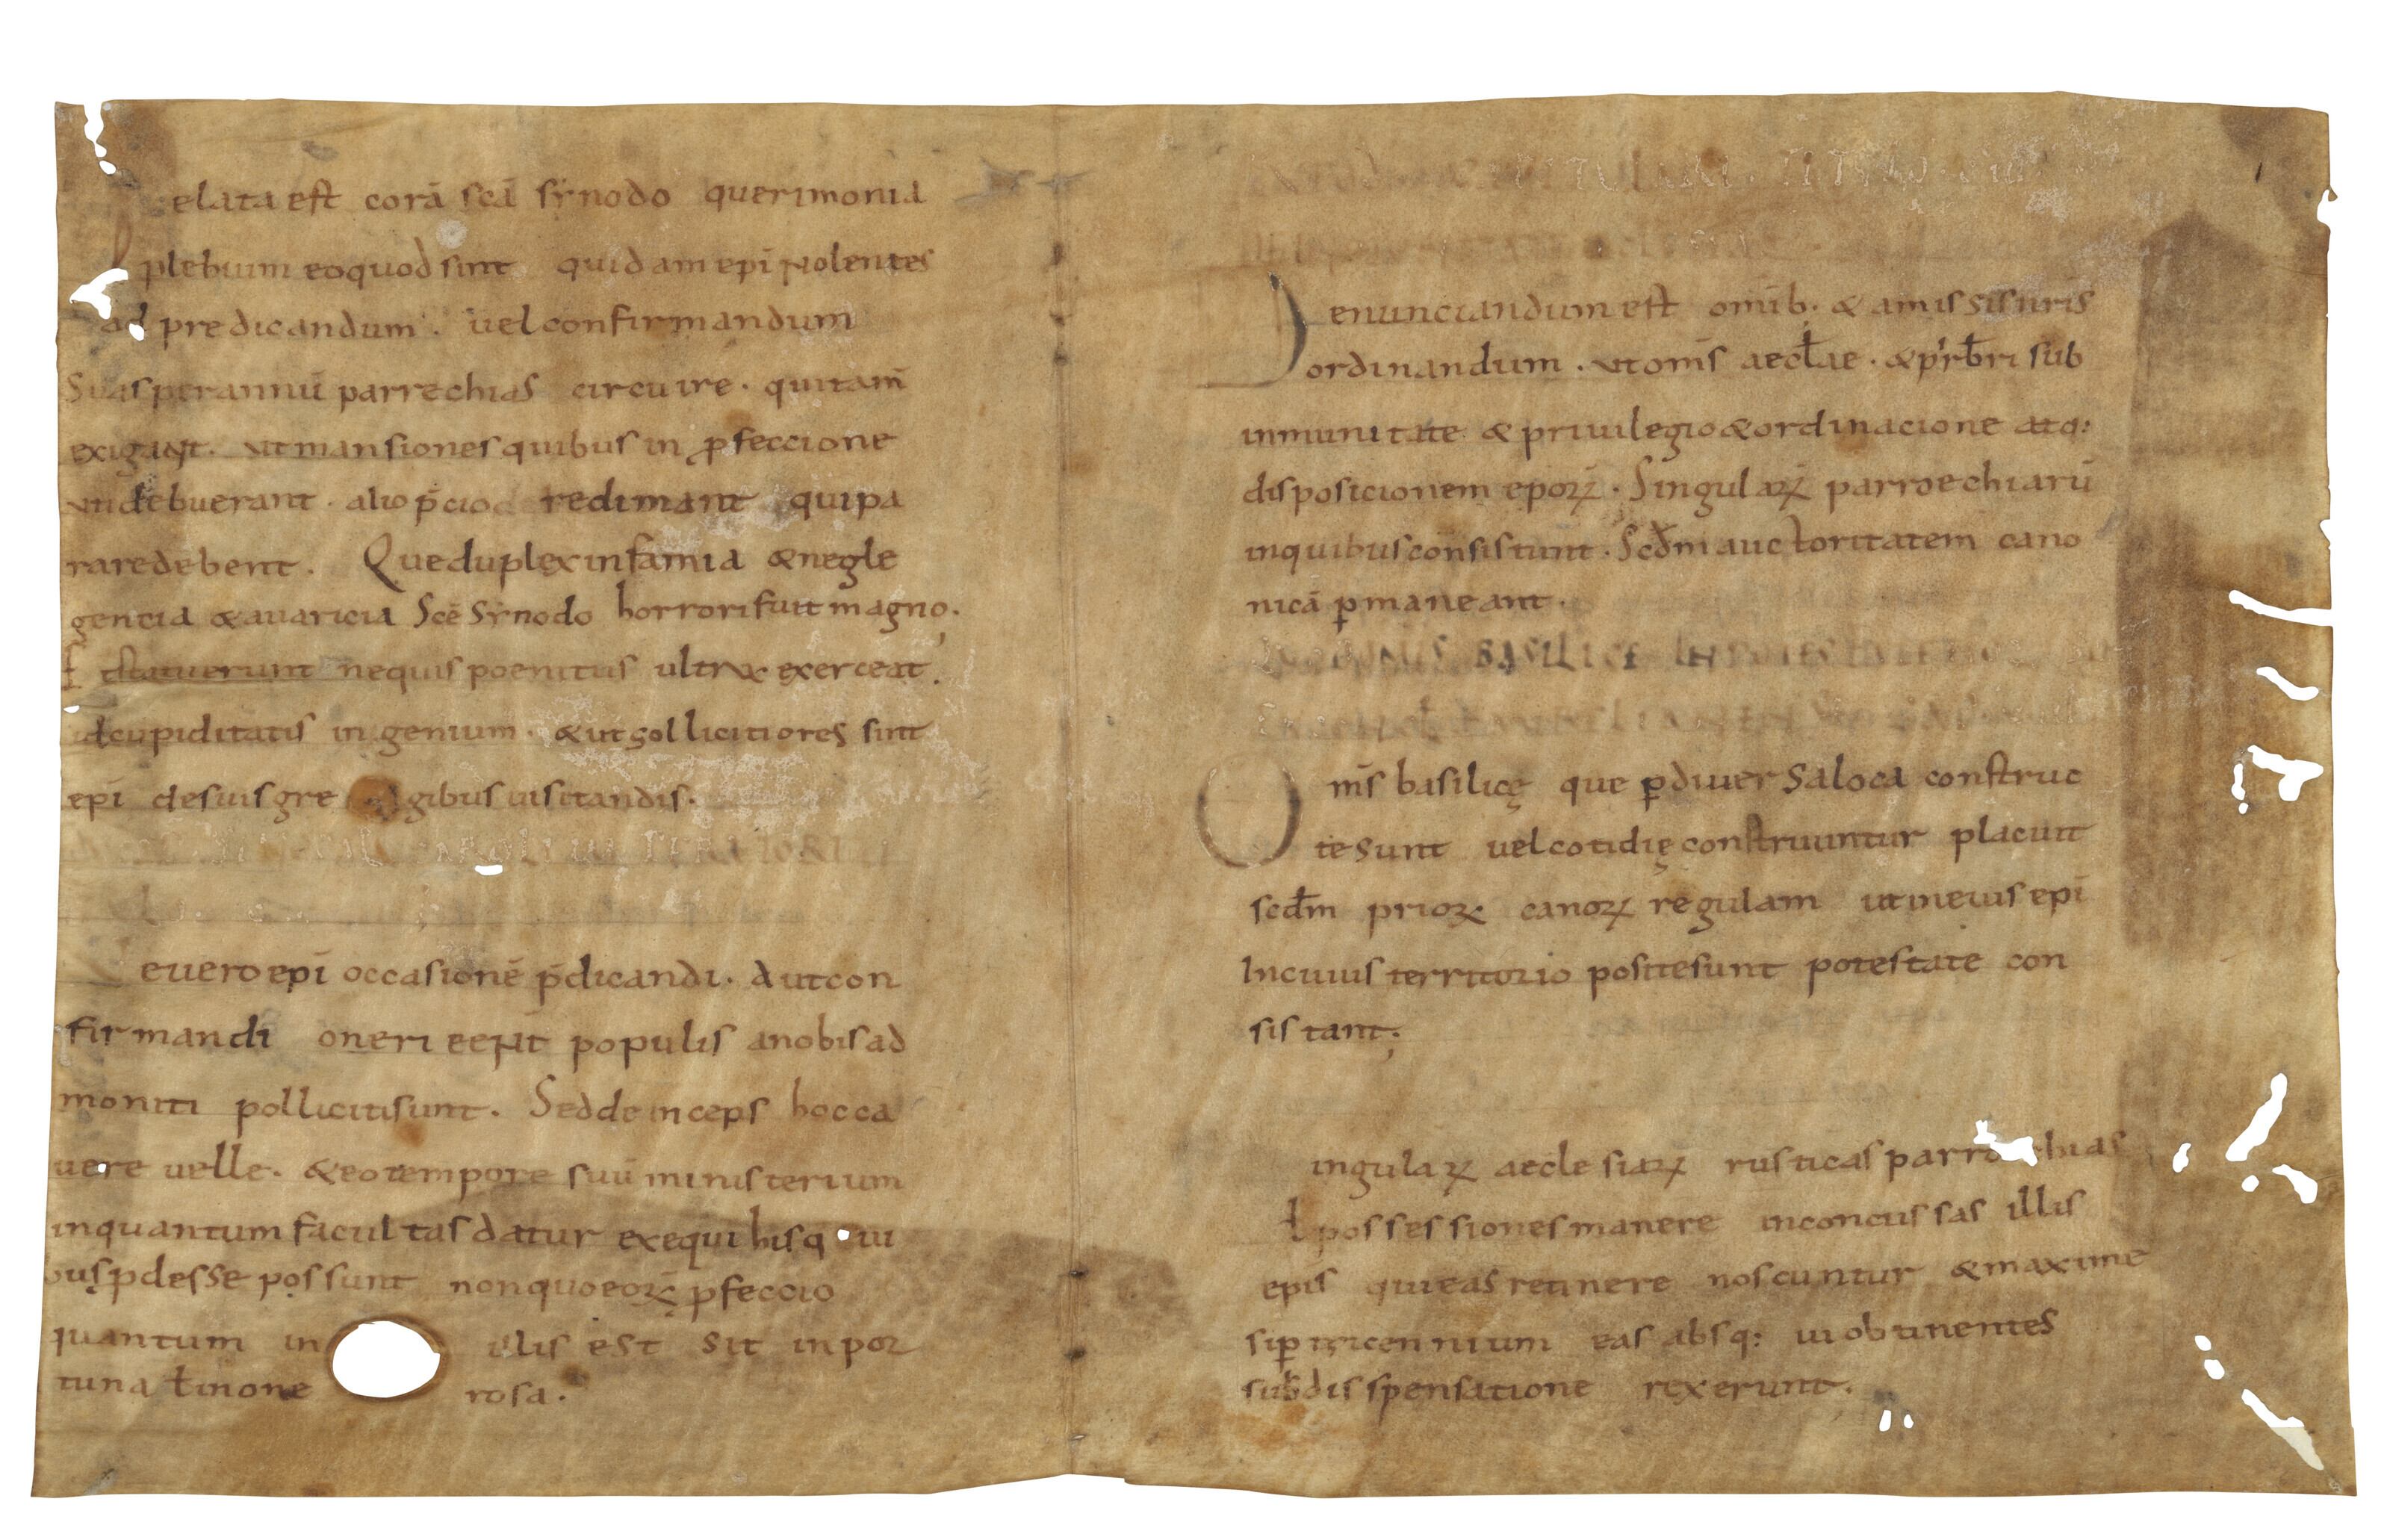 elata est corā scā synodo querimonia
plebium eoquod sint quidam epī nolentes
ad predicandum. uel confirmandum
Suas perannū parrechias circuire. quitam̄
exigant. ut mansiones quibus in ꝓfeccione
uti debuerant. alio p̄cio redimant qui pa
rare debent. Que duplex infamia & negle
gencia & auaricia Scē Synodo horrori fuit magno.
& statuerunt nequis poenitus ultra exerceat.
id cupiditatis ingenium. & ut sollicitiores sint
epī de suis gre gibus uisitandis.
euero epī occasionē p̄dicandi. Aut con
firmandi oneri eent populis anobis ad
moniti polliciti sunt. Sed deinceps hoc ca
uere uelle. & eo tempore suū ministerium
inquantum facultas datur exequi hisq ui
bus ꝓdesse possunt non quo eoꝝ ꝓfeccio
quantum in illis est sit inpor
tuna ł in one rosa.
Denunciandum est omīb. & amissis uris
ordinandum. ut oms̄ aecłae. & pr̄sbr̄i sub
inmunitate & priuilegio & ordinacione atq:
disposicionem epoꝝ. Singulaꝝ parroechiarū
inquibus consistunt. Scd̄m auctoritatem cano
nicā ꝑmaneant.
BASILICE
Om̄s basilicę que ꝑ diuersa loca construc
te sunt uel cotidię construuntur placuit
scd̄m prioꝝ canoꝝ regulam ut in eius epī
In cuius territorio posite sunt potestate con
sistant;
ingulaꝝ aeclesiaꝝ rusticas parro chias
ł possessiones manere inconcussas illis
epis qui eas retinere noscuntur & maxime
si ꝑ tricennium eas absq: ui obtinentes
sub disspensatione rexerunt.